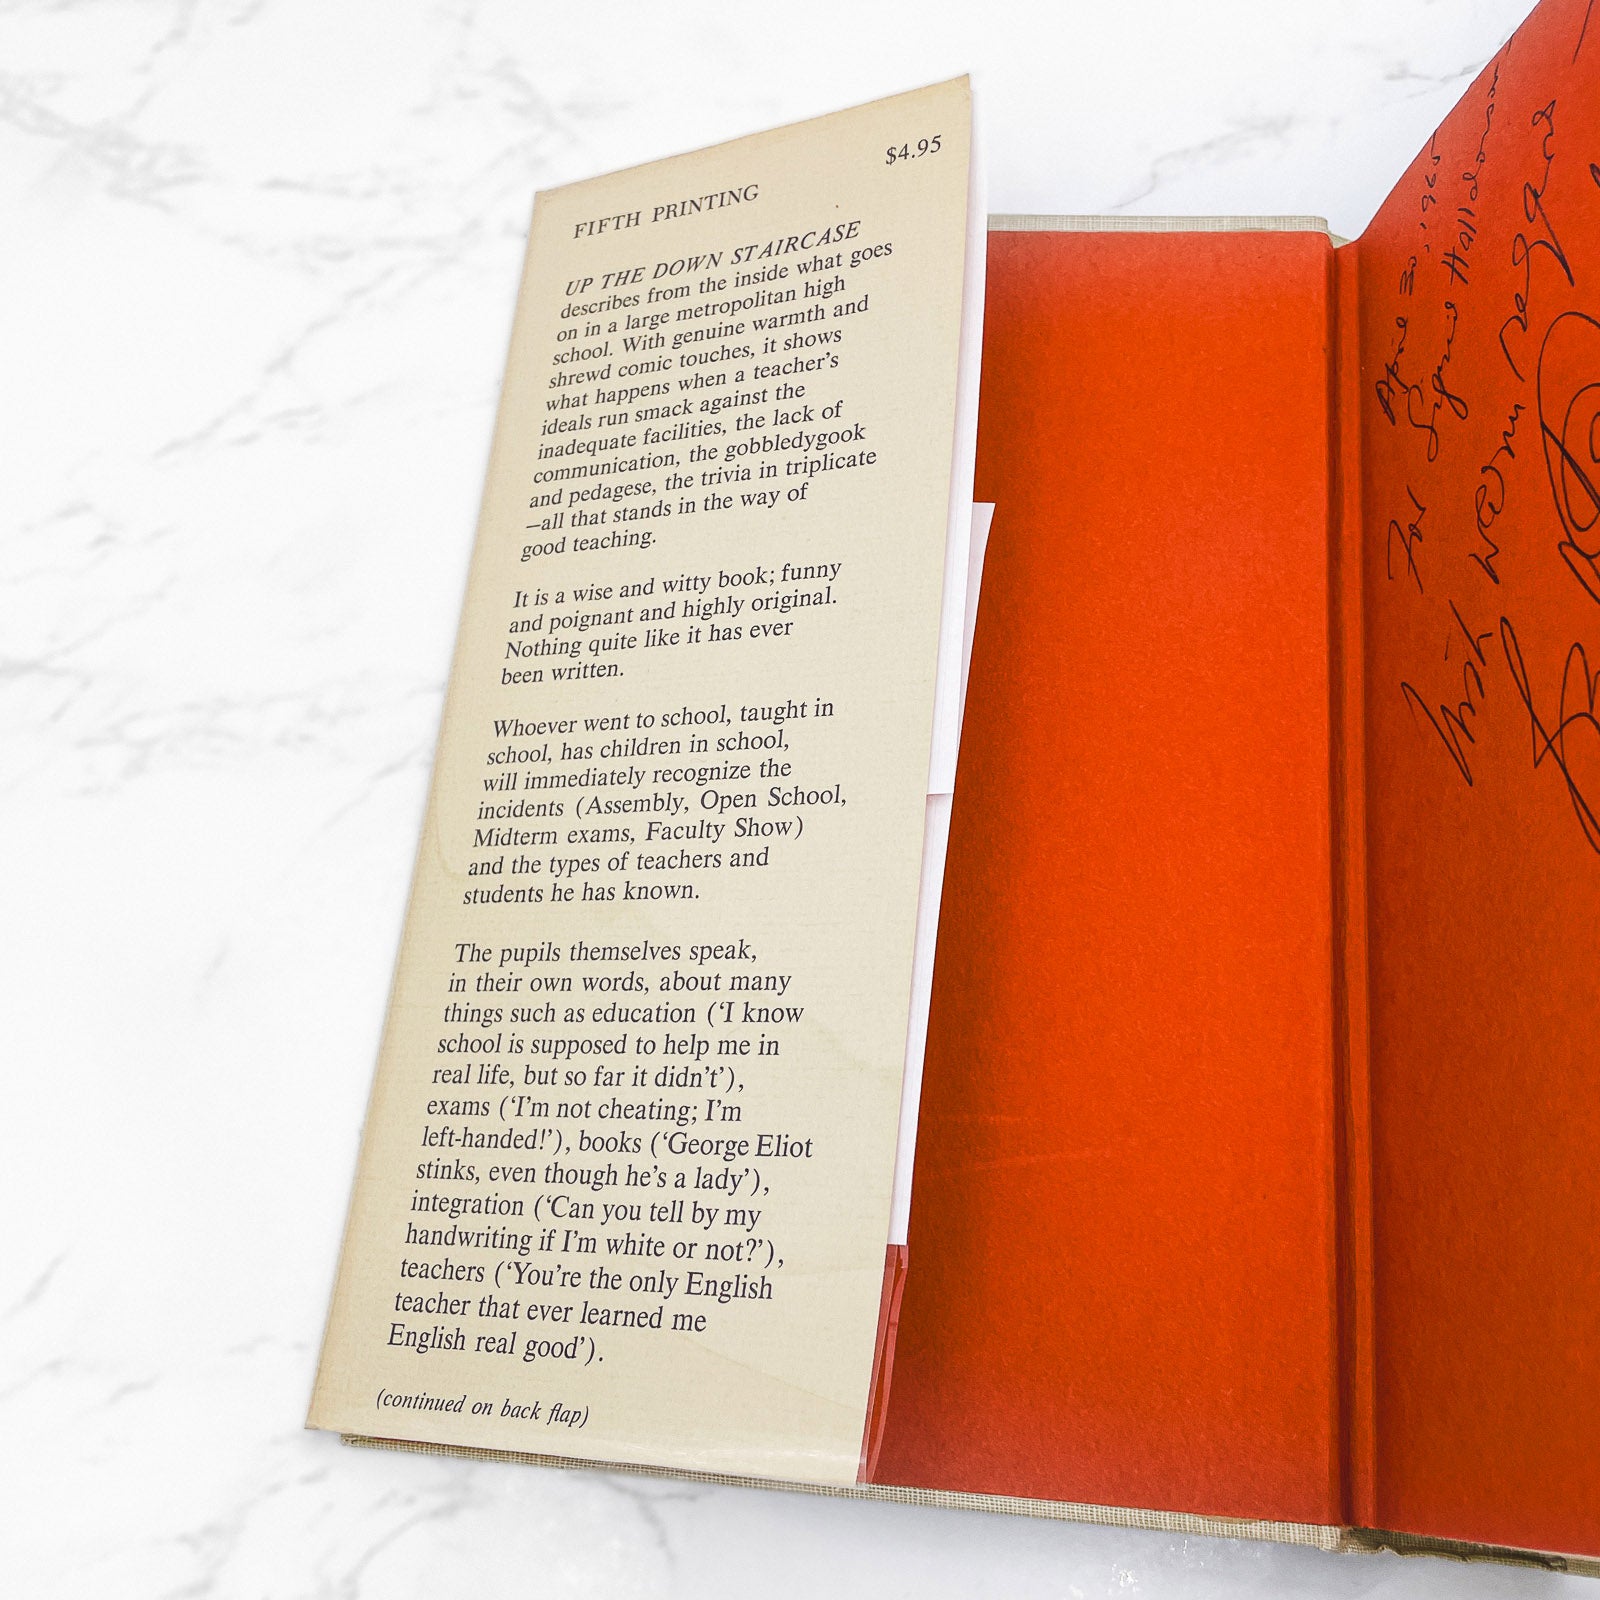 $4.95
FIFTH PRINTING
UP THE DOWN STAIRCASE
describes from the inside what goes
on in a large metropolitan high
school. With genuine warmth and
shrewd comic touches, it shows
what happens when a teacher's
ideals run smack against the
inadequate facilities, the lack of
communication, the gobbledygook
and pedagese, the trivia in triplicate
—all that stands in the way of
good teaching.
It is a wise and witty book; funny
and poignant and highly original.
Nothing quite like it has ever
been written.
Whoever went to school, taught in
school, has children in school,
will immediately recognize the
incidents (Assembly, Open School,
Midterm exams, Faculty Show)
and the types of teachers and
students he has known.
The pupils themselves speak,
in their own words, about many
things such as education ('I know
school is supposed to help me in
real life, but so far it didn't'),
exams ('I'm not cheating; I'm
left-handed!'), books ('George Eliot
stinks, even though he's a lady'),
integration ('Can you tell by my
handwriting if I'm white or not?'),
teachers ('You're the only English
teacher that ever learned me
English real good').
(continued on back flap)
April 30, 1965
For Sigrid Halldorson
with warm regards